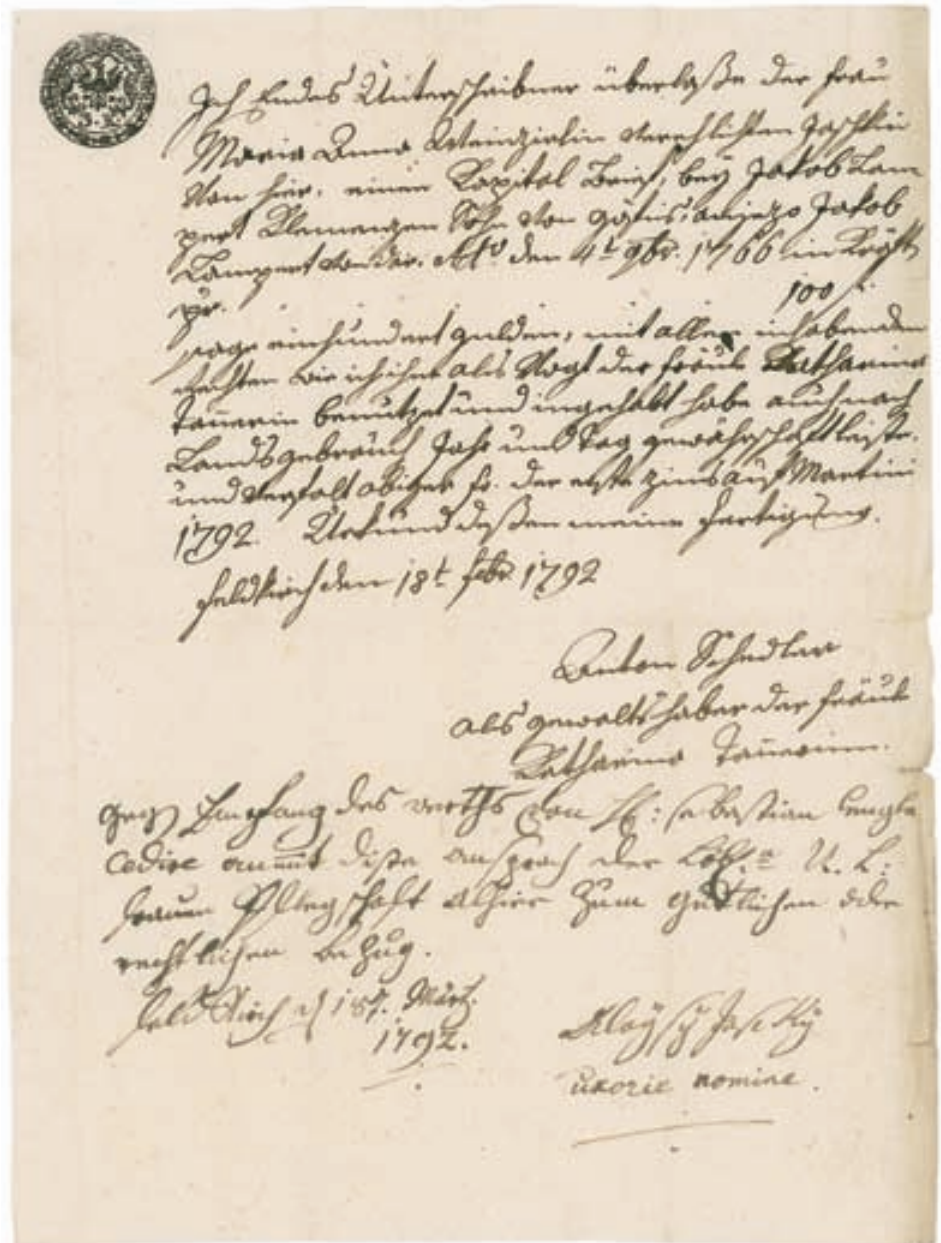 Ich Endes Unterschribner überlaße der frau
Maria Anna Weinzirlin verehlichten Jaschkin
von hier, einen Kapital Brief, bey Jakob Lam
pert Klemenzen Sohn von göfis, anjezo Jakob
Lampert von der. dto den 4t 9br. 1766 in Kräft
pr. 100 f.
sage einhundert gulden, mit allen inhabenden
rechten wie ich ihn als Vogt der fräule Katharina
Tanerin benützet und ingehabt habe auch nach
Landsgebrauch Jahr und Tag gewährschaft leiste.
und verfalt obiger fr. der erste zins auf Martini
1792. Urkund deßen meine fertigung.
feldkirch den 18t febr. 1792
Anton Schedler
als gewaltshaber der fräule
Katharina Tanerinn.
gegen Empfang des werths von H: sebastian
cedire diese ansprach der Löbl. U. L:
frauen Pflegschaft alhier zum gütlichen oder
rechtlichen bezug.
feldkirch d 18t. Märtz.
1792.
Aloysy Jaschky
uxorie nomine.